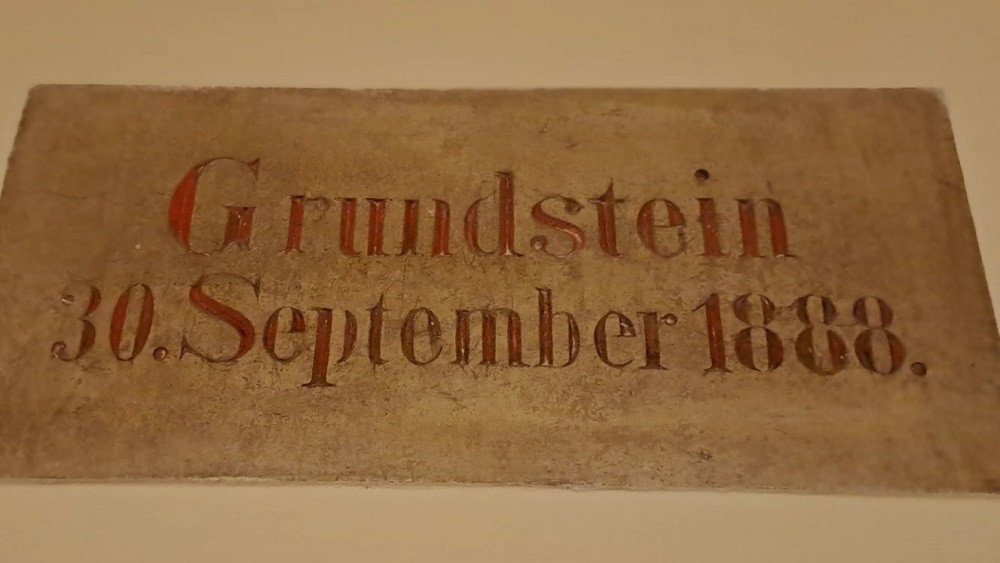 Grundstein
30. September 1888.